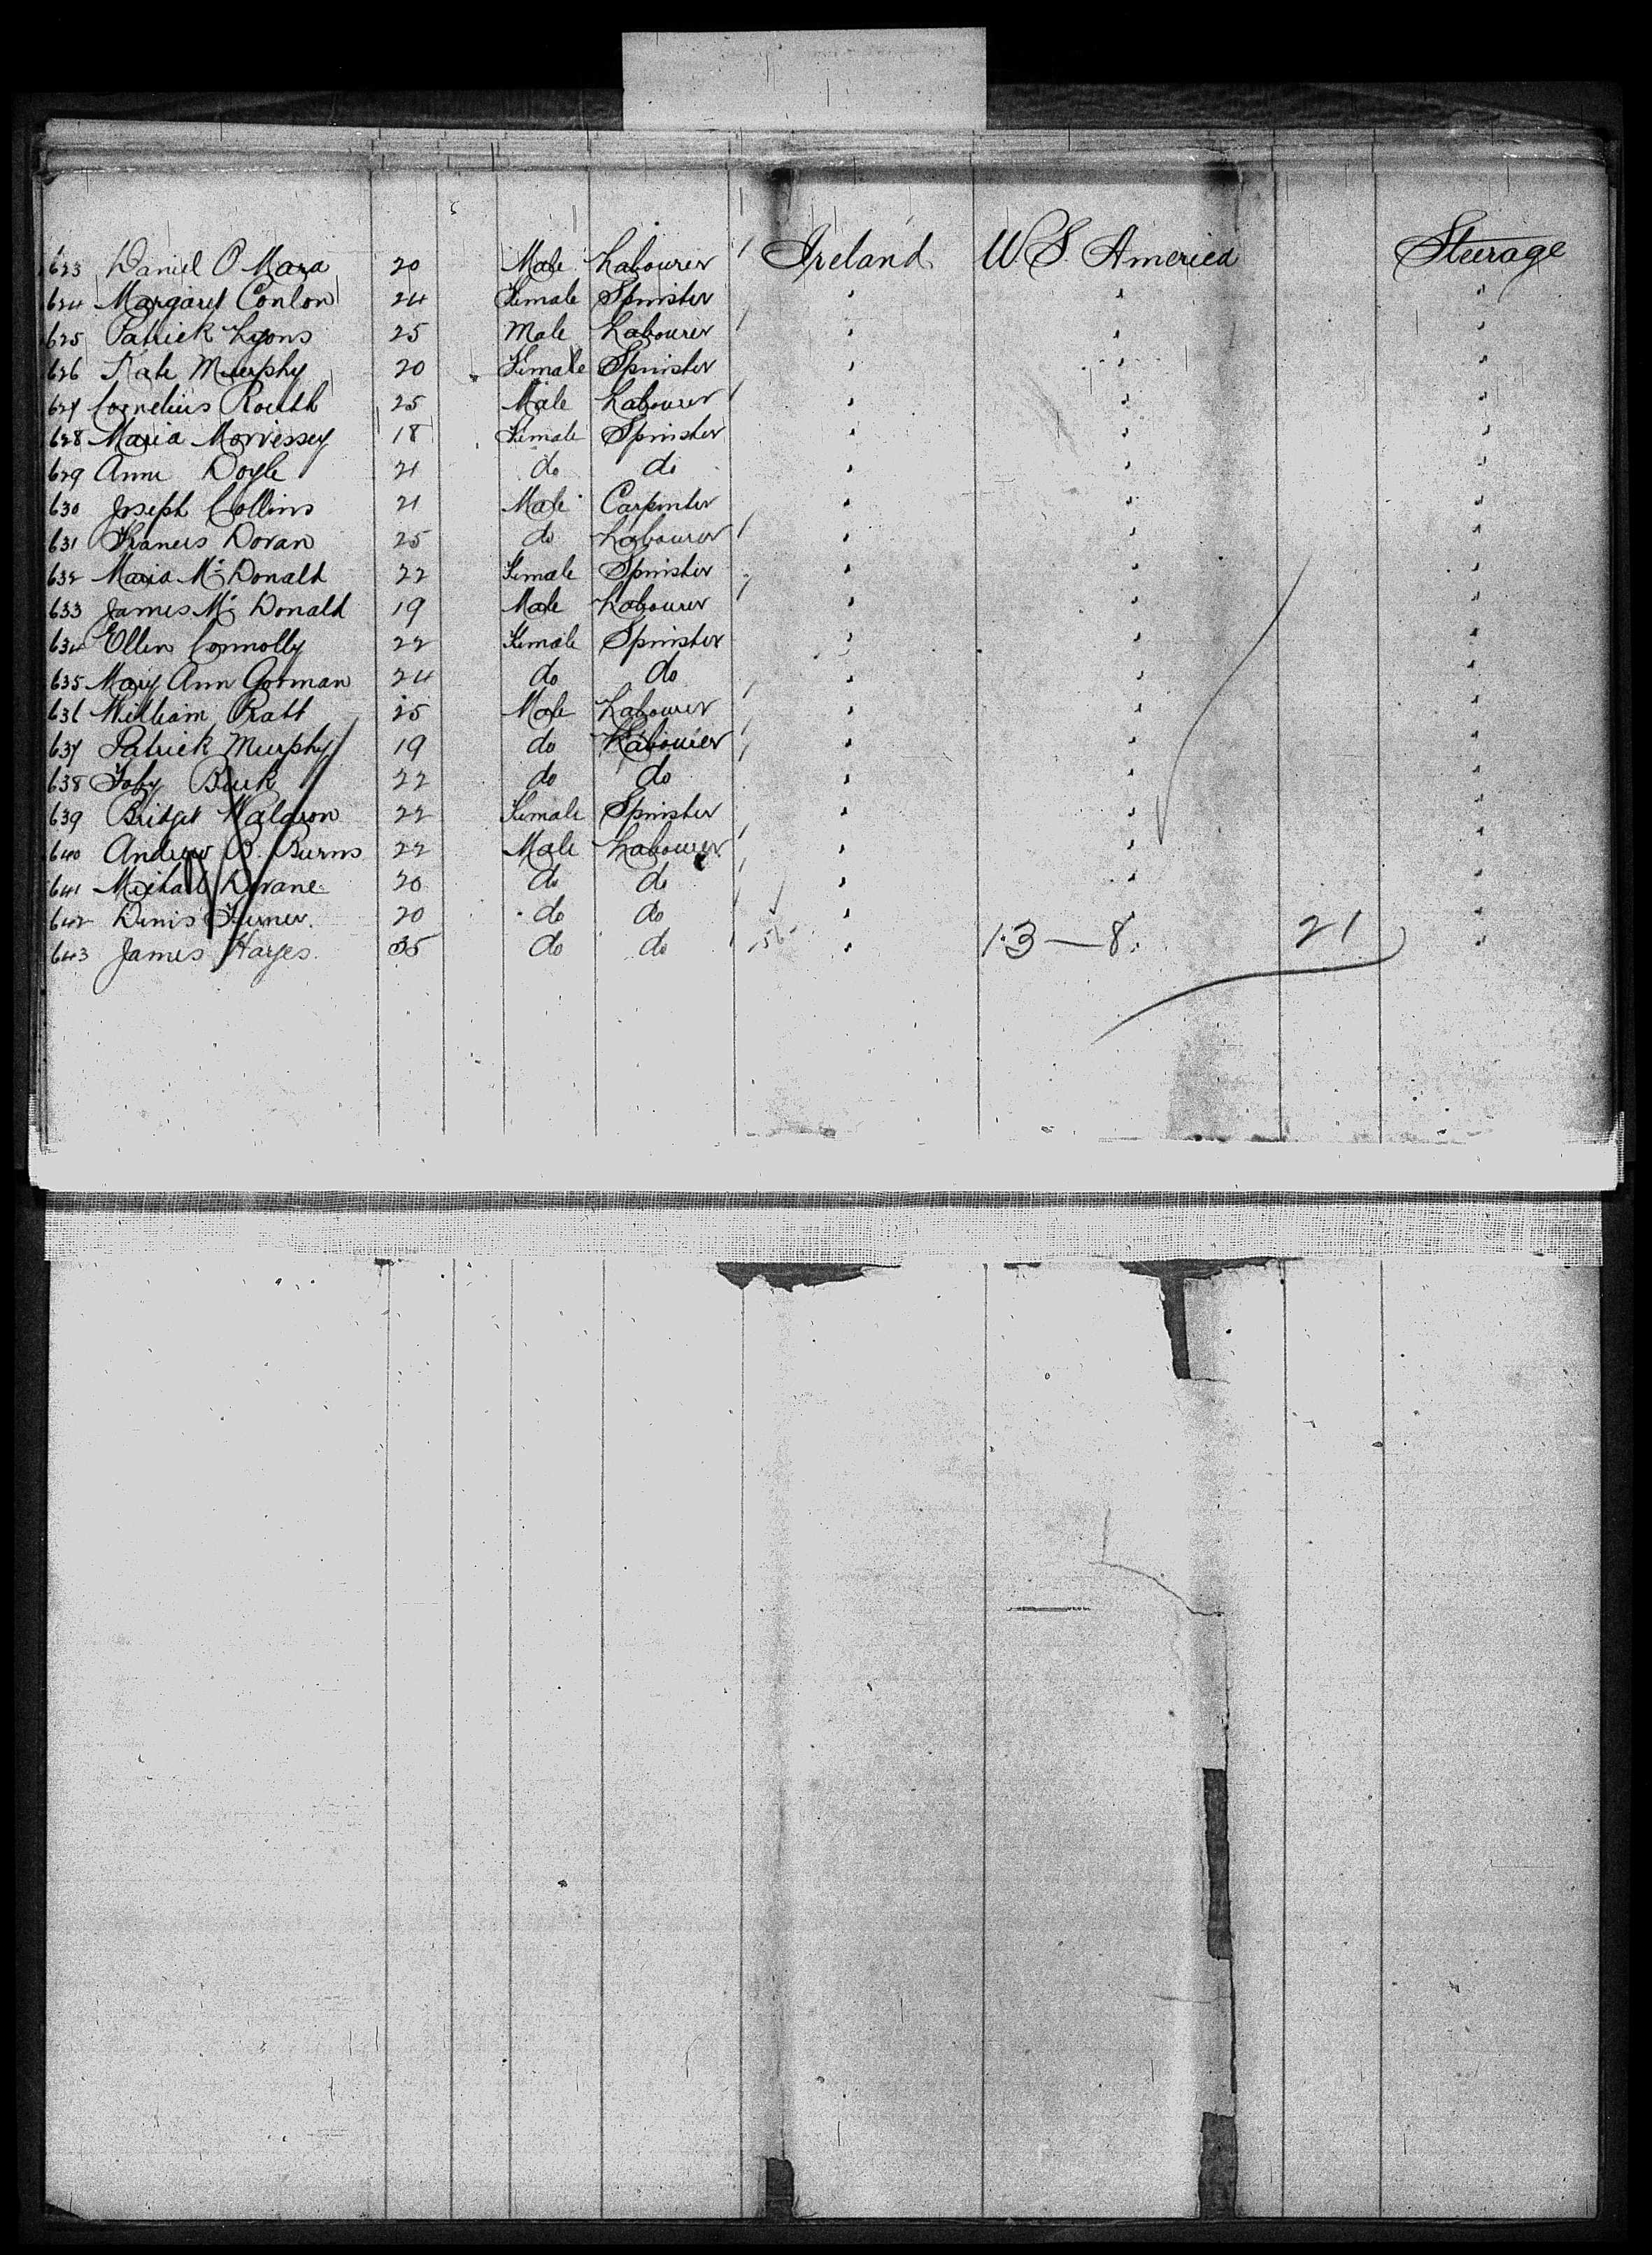 623 Daniel O Mara 20 Male Labourer Ireland U S. America Steerage
624 Margaret Conlon 24 Female Spinster " " "
625 Patrick Lyons 25 Male Labourer " " "
626 Kate Murphy 20 Female Spinster " " "
627 Cornelius Routh 25 Male Labourer " " "
628 Maria Morrissey 18 Female Spinster " " "
629 Anne Doyle 21 do do " " "
630 Joseph Collins 21 Male Carpenter " " "
631 Francis Doran 25 do Labourer " " "
632 Maria Mc Donald 22 Female Spinster " " "
633 James Mc Donald 19 Male Labourer " " "
634 Ellen Connolly 22 Female Spinster " " "
635 Mary Ann Gorman 24 do do " " "
636 William Pratt 25 Male Labourer " " "
637 Patrick Murphy 19 do Labourer " " "
638 Toby Buck 22 do do " " "
639 Bridget Waldron 22 Female Spinster " " "
640 Andrew B. Burns 22 Male Labourer " " "
641 Michael Devane 20 do do " " "
642 Denis 20 do do " " "
643 James Hayes 35 do do -56- " 13 — 8 21 "